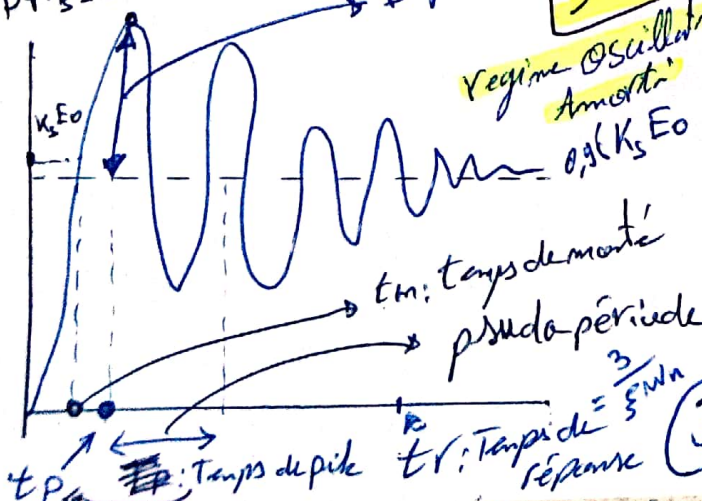 regime Oscillat
Amorti
KsE0
0,95 KsE0
tm: temps de monté
psudo-périede
tp
: Temps de pik
tr: Temps de réponse = 3/ξWn